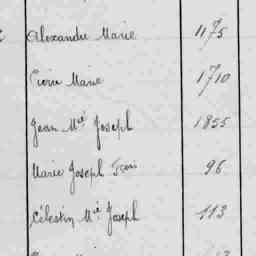 Alexandre Marie 1175
Pierre Marie 1710
Jean Mie Joseph 1855
Marie Joseph Fçois 96
Célestin Mie Joseph 113